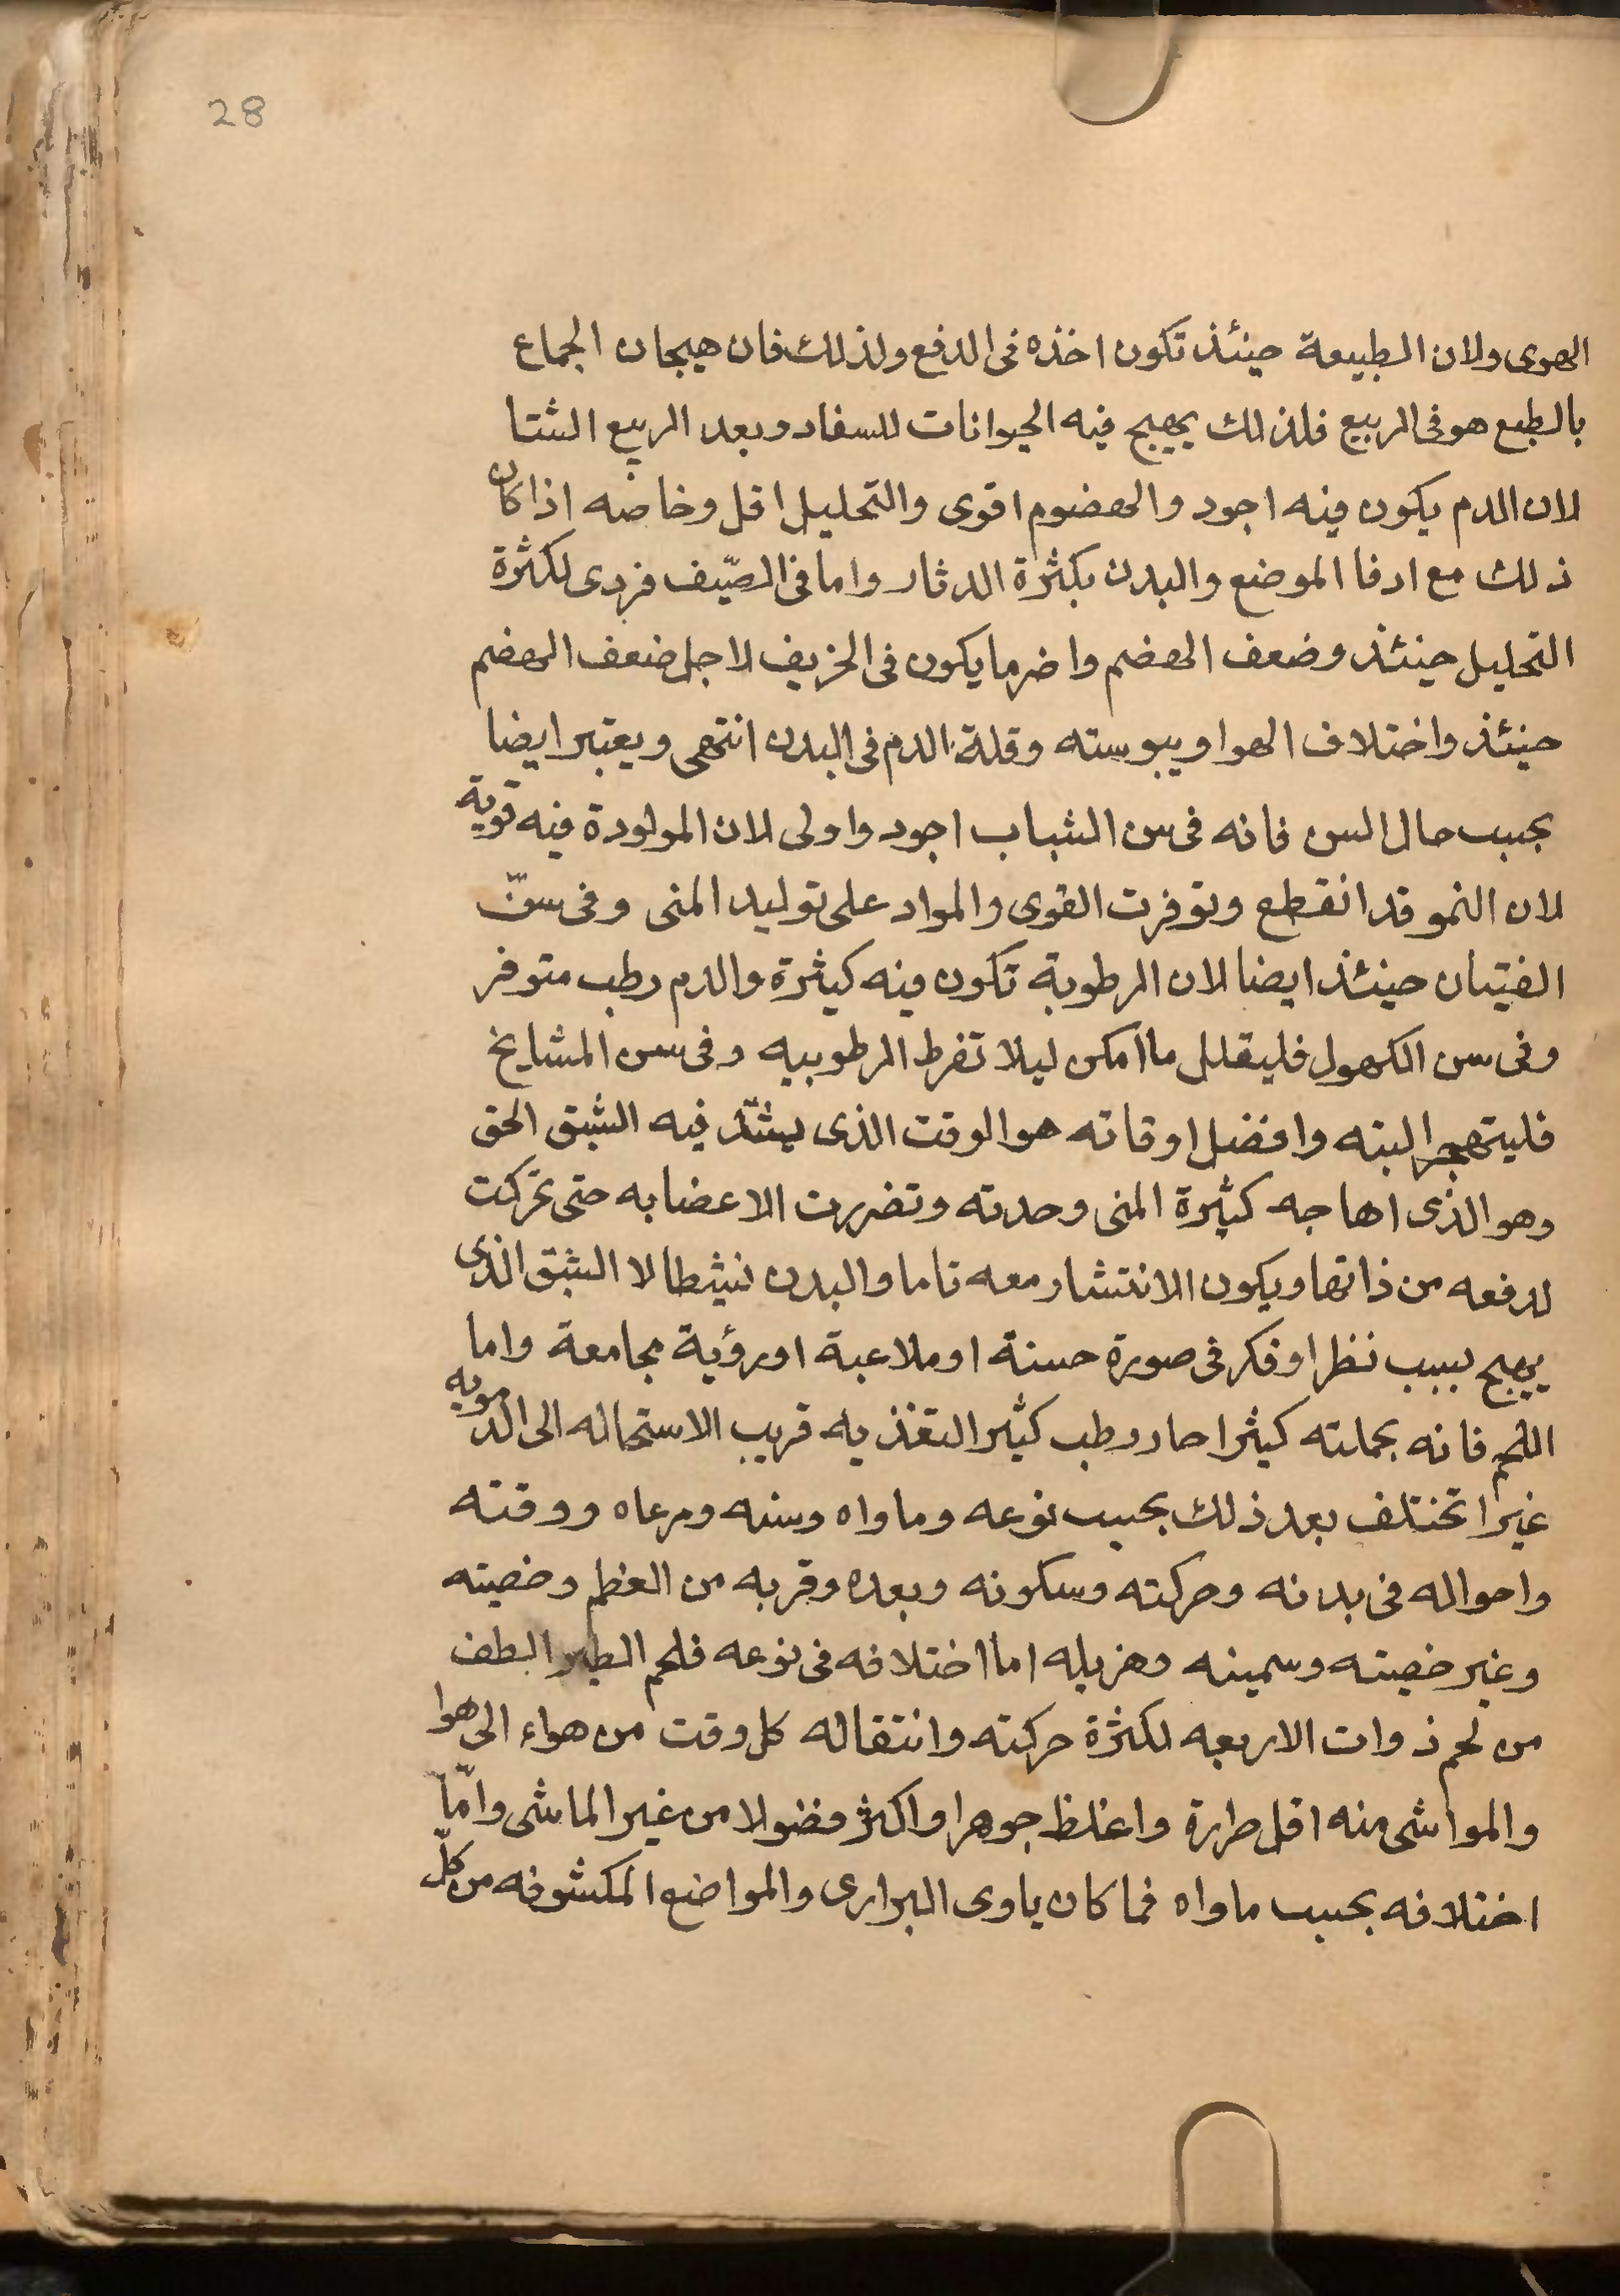 28
الهوى ولان الطبيعة حينئذ تكون اخذه فى الدفع ولذلك فان هيجان الجماع
بالطبع هو فى الربيع فلذلك يهيج فيه الحيوانات للسفاد وبعد الربيع الشتا
لان الدم يكون فيه اجود والهضوم اقوى والتحليل اقل وخاصه اذا كان
ذلك مع ادفا الموضع والبدن بكثرة الدثار واما فى الصيّف فردى لكثرة
التحليل حينئذ وضعف الهضم واضر ما يكون فى الخريف لاجل ضعف الهضم
حينئذ واختلاف الهوا ويبوسته وقلة الدم فى البدن انتهى ويعتبر ايضا
بحسب حال السن فانه فى سن الشباب اجود واولى لان المولودة فيه قوية
لان النمو قد انقطع وتوفرت القوى والمواد على توليد المنى وفى سنّ
الفتيان حينئذ ايضا لان الرطوبة تكون فيه كثيرة والدم رطب متوفر
وفى سن الكهول فليقلل ما امكن ليلا تفرط الرطوبيه وفى سن المشايخ
فليتهجر البته وافضل اوقاته هو الوقت الذى يشتد فيه الشبق الحق
وهو الذى اهاجه كثيرة المنى وحدته وتضررت الاعضا به حتى تحركت
لدفعه من ذاتها ويكون الانتشار معه تاما والبدن نشيطا لا الشبق الذى
يهيج بسبب نظر او فكر فى صورة حسنة او ملاعبة او رؤية مجامعة واما
اللحم فانه بجملته كثيرا حار رطب كثير التغذيه قريب الاستحاله الى الدمويه
غيرا تختلف بعد ذلك بحسب نوعه وماواه وسنه ومرعاه ووقته
واحواله فى بدنه وحركته وسكونه وبعده وقربه من العظم وخصيته
وغير خصيته وسمينه وهزيله اما اختلافه فى نوعه فلحم الطير الطف
من لحم ذوات الاربعه لكثرة حركته وانتقاله كل وقت من هواء الى هوا
والمواشى منه اقل حرارة واغلظ جوهرا واكثر فضولا من غير الماشى وامّا
اختلافه بحسب ماواه فما كان ياوى البرارى والمواضع المكشوفه من كلّ